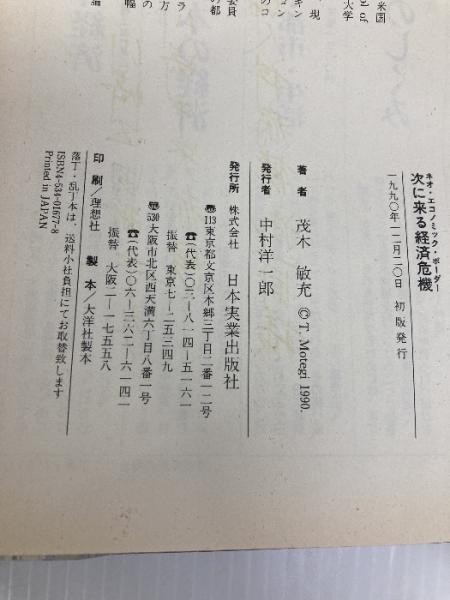 ネオ・エコノミック・ボーダー
次に来る経済危機
一九九〇年一二月二〇日 初版発行
著者 茂木 敏充 ©T. Motegi 1990.
発行者 中村洋一郎
発行所 株式会社 日本実業出版社
〒113 東京都文京区本郷三丁目二番一二号
☎(代表)〇三―八一四―五一六一
振替 東京七―二五三四九
〒530 大阪市北区西天満六丁目八番一号
☎(代表)〇六―三六二―六一四一
振替 大阪二―一七五五八
印刷/理想社 製本/大洋社製本
落丁・乱丁本は、送料小社負担にてお取替致します
ISBN4-534-01677-8
Printed in JAPAN